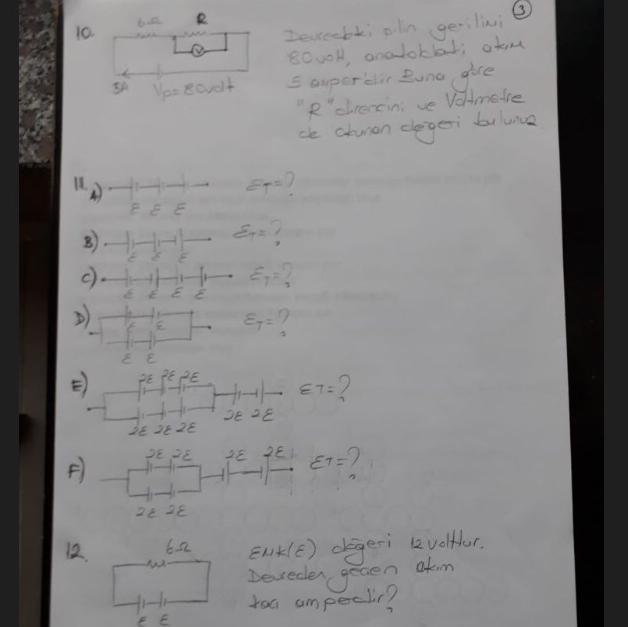 3
10.
6Ω R
V
5A Vp=80volt
Devredeki pilin gerilimi
80volt, anakoldaki akım
5 amperdir Buna göre
"R" direncini ve Voltmetre
de okunan değeri bulunuz.
11.
A) ε ε ε εT=?
B) ε ε ε εT=?
C) ε ε ε ε εT=?
D) ε ε εT=?
ε ε
E) 2ε 2ε 2ε εT=?
2ε 2ε 2ε 2ε 2ε
F) 2ε 2ε 2ε 2ε εT=?
2ε 2ε
12.
6Ω
ε ε
EMK(ε) değeri 12 volttur.
Devreden geçen akım
kaç amperdir?